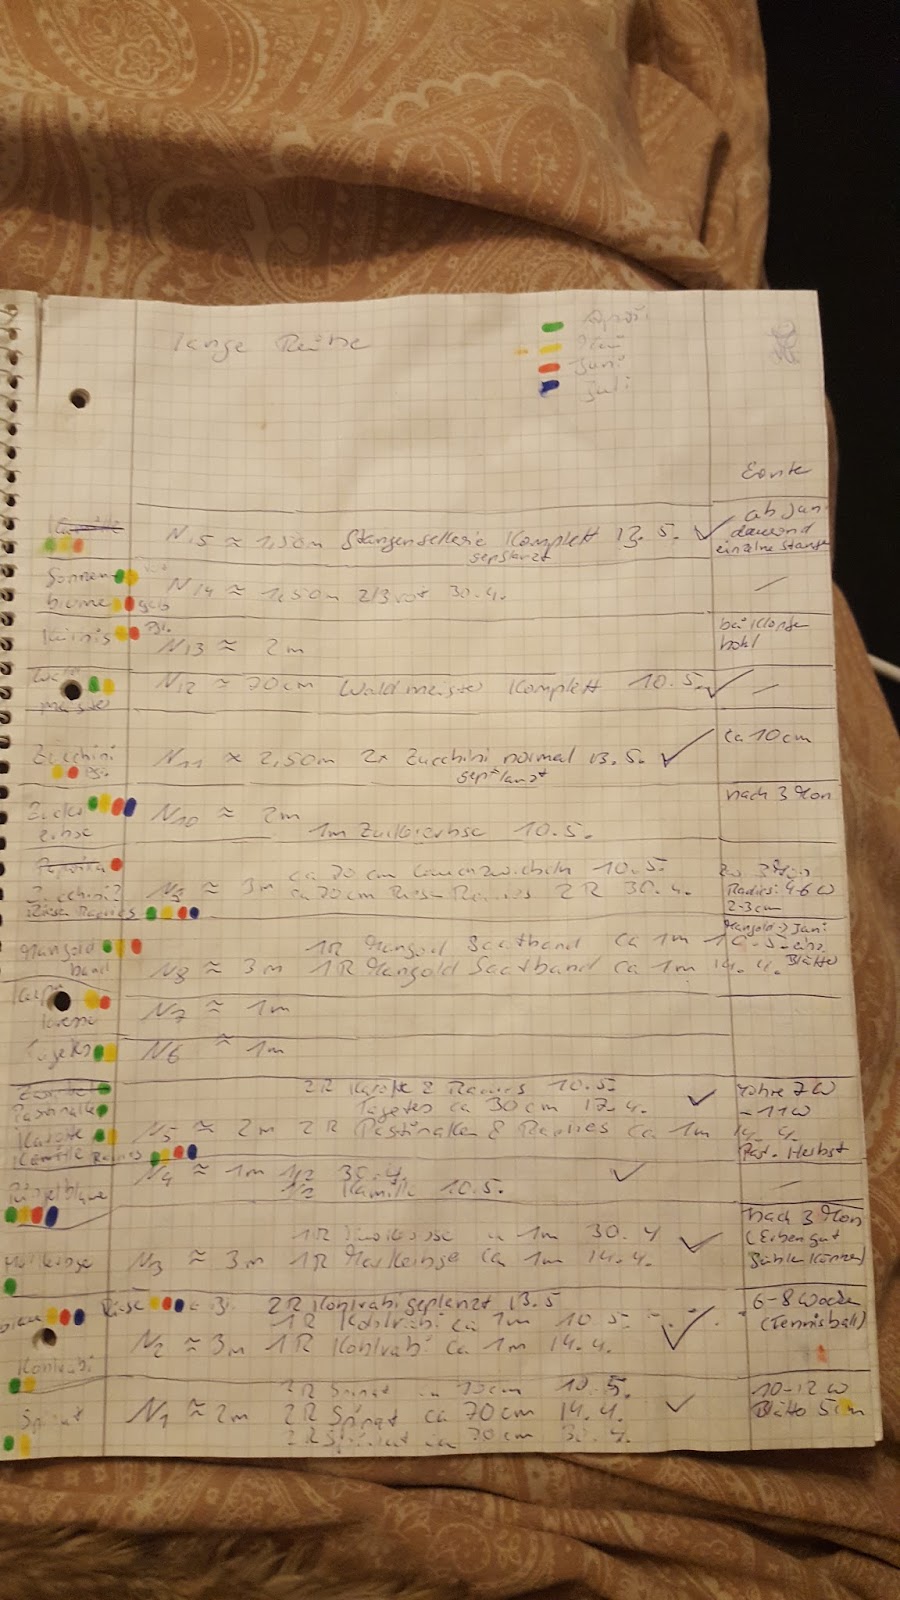 lange Reihe
April
Mai
Juni
Juli
Ernte
N15 ≈ 1,50m Stangensellerie Komplett 13.5. ✓
gepflanzt
ab Juni
dauernd
einzelne Stange
Sonnen-
blume gelb
N14 ≈ 1,50m 2/3 rot 30.4.
—
Kürbis
N13 ≈ 2m
bei Klopfen
hohl
Wald
meister
N12 ≈ 70cm Waldmeister Komplett 10.5. ✓
—
Zucchini
N11 ≈ 2,50m 2x Zucchini normal 13.5. ✓
gepflanzt
ca 10cm
Zucker
erbse
N10 ≈ 2m
1m Zuckererbse 10.5.
nach 3 Mon
Zucchini?
Riesen Radies
ca 70cm 10.5.
N9 ≈ 3m ca 70cm Riesen Radies 2R 30.4.
Radies: 4-6W
2-3cm
Mangold
band
1R Mangold Saatband ca 1m 10.5.
N8 ≈ 3m 1R Mangold Saatband ca 1m 14.4.
Mangold > Juni
einz.
Blätter
kresse
N7 ≈ 1m
Tagetes
N6 ≈ 1m
Pastinake
Karotte
Kamille Radies
2R Karotte & Radies 10.5.
Tagetes ca 30cm 17.4. ✓
N5 ≈ 2m 2R Pastinaken & Radies ca 1m 14.4.
Möhre 7W
- 11W
Past. Herbst
Ringelblume
N4 ≈ 1m 1/2 30.4. ✓
1/2 Kamille 10.5.
—
Markerbse
1R Markerbse ca 1m 30.4
N3 ≈ 3m 1R Markerbse ca 1m 14.4. ✓
nach 3 Mon
(Erbsen gut
fühlen können)
Kohlrabi
2R Kohlrabi gepflanzt 13.5
1R Kohlrabi ca 1m 10.5.
N2 ≈ 3m 1R Kohlrabi ca 1m 14.4. ✓
6-8 Wochen
(Tennisball)
Spinat
2R Spinat ca 70cm 10.5.
N1 ≈ 2m 2R Spinat ca 70cm 14.4. ✓
2R Spinat ca 70cm 30.4.
10-12W
Blätter 5cm